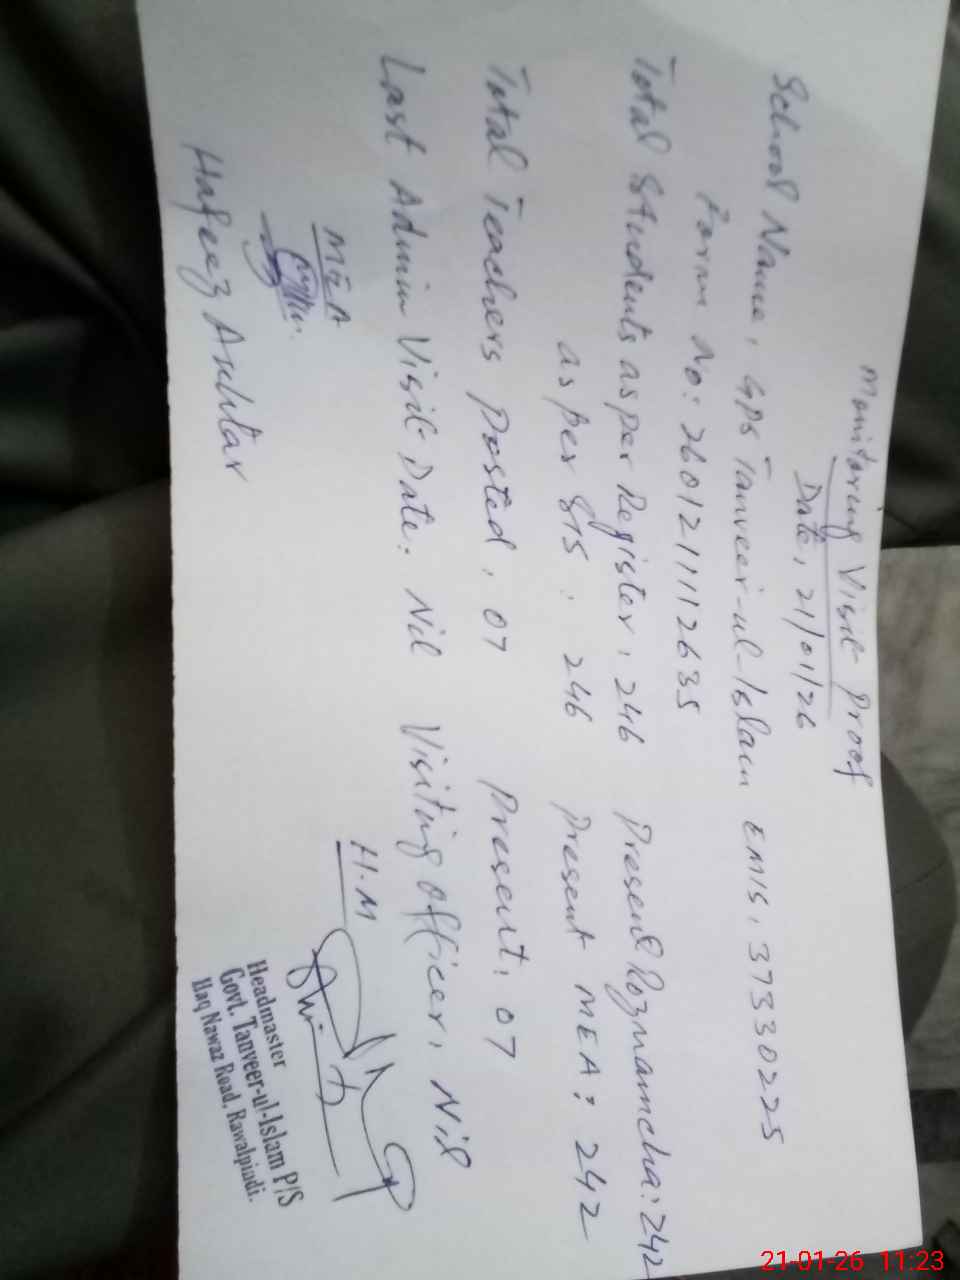 Monitoring Visit Proof
Date, 21/01/26
School Name, GPS Tanveer-ul-Islam EMIS, 37330225
Form No: 26012111112635
Total Students as per Register, 246 Present Roznamcha: 242
as per SIS: 246 Present MEA: 242
Total Teachers posted, 07 Present, 07
Last Admin Visit Date: Nil Visiting Officer, Nil
MEA H.M
Hafeez Akhtar
Headmaster
Govt. Tanveer-ul-Islam P/S
Haq Nawaz Road, Rawalpindi.
21-01-26 11:23